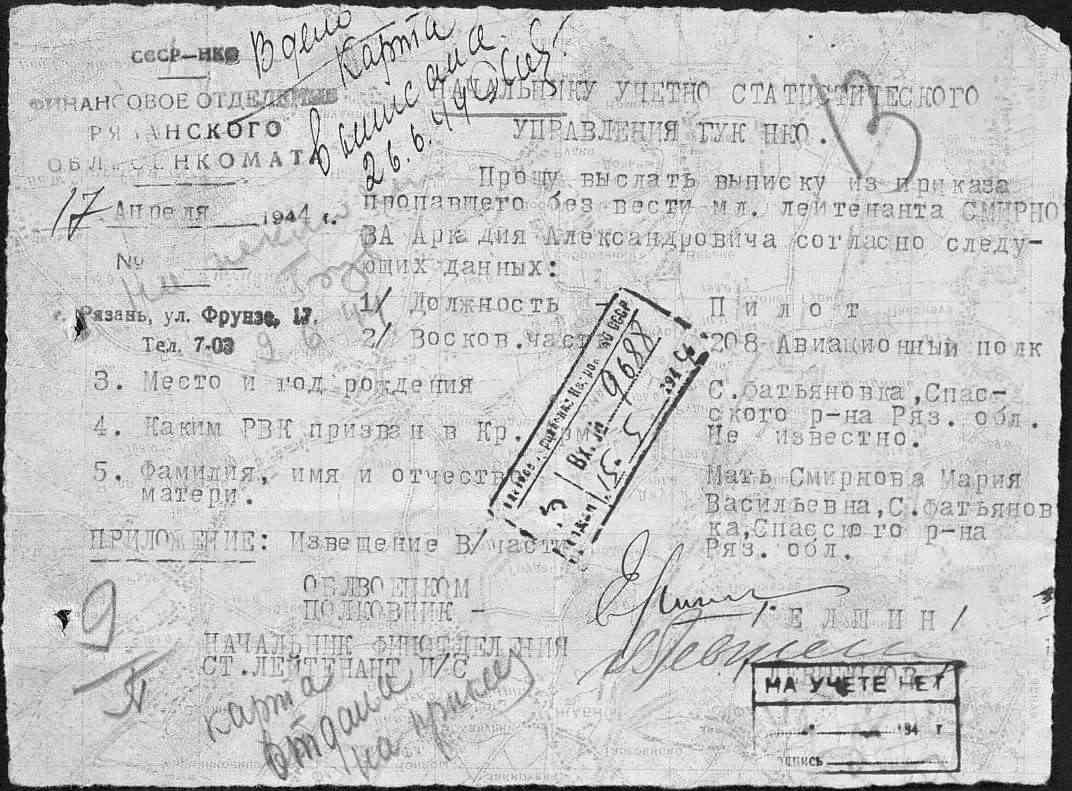 СССР-НКО
ФИНАНСОВОЕ ОТДЕЛЕНИЕ
РЯЗАНСКОГО
ОБЛВОЕНКОМАТ
17 Апреля 1944 г.
№
г. Рязань, ул. Фрунзе, 17.
Тел. 7-03
В дело
Карта
выписана.
26.6.44
НАЧАЛЬНИКУ УЧЕТНО СТАТИСТИЧЕСКОГО
УПРАВЛЕНИЯ ГУК НКО.
13
Прошу выслать выписку из приказа
пропавшего без вести мл. лейтенанта СМИРНО
ВА Аркадия Александровича согласно следу-
ющих данных:
1/ Должность - Пилот
2/ Восков.часть 208 Авиационный полк
3. Место и год рождения С.фатьяновка,Спас-
ского р-на Ряз. обл.
4. Каким РВК призван в Кр. Арм Не известно.
5. Фамилия, имя и отчество Мать Смирнова Мария
матери. Васильевна,С.фатьянов
ка,Спасскюго р-на
Ряз. обл.
Вх. № 9688
15. 5 1944
ПРИЛОЖЕНИЕ: Извещение В/части
ОБЛВОЕНКОМ
ПОЛКОВНИК - /ЕЛШИН/
НАЧАЛЬНИК ФИНОТДЕЛЕНИЯ
СТ.ЛЕЙТЕНАНТ И/С
9
карта
отдана
на
НА УЧЕТЕ НЕТ
194 г